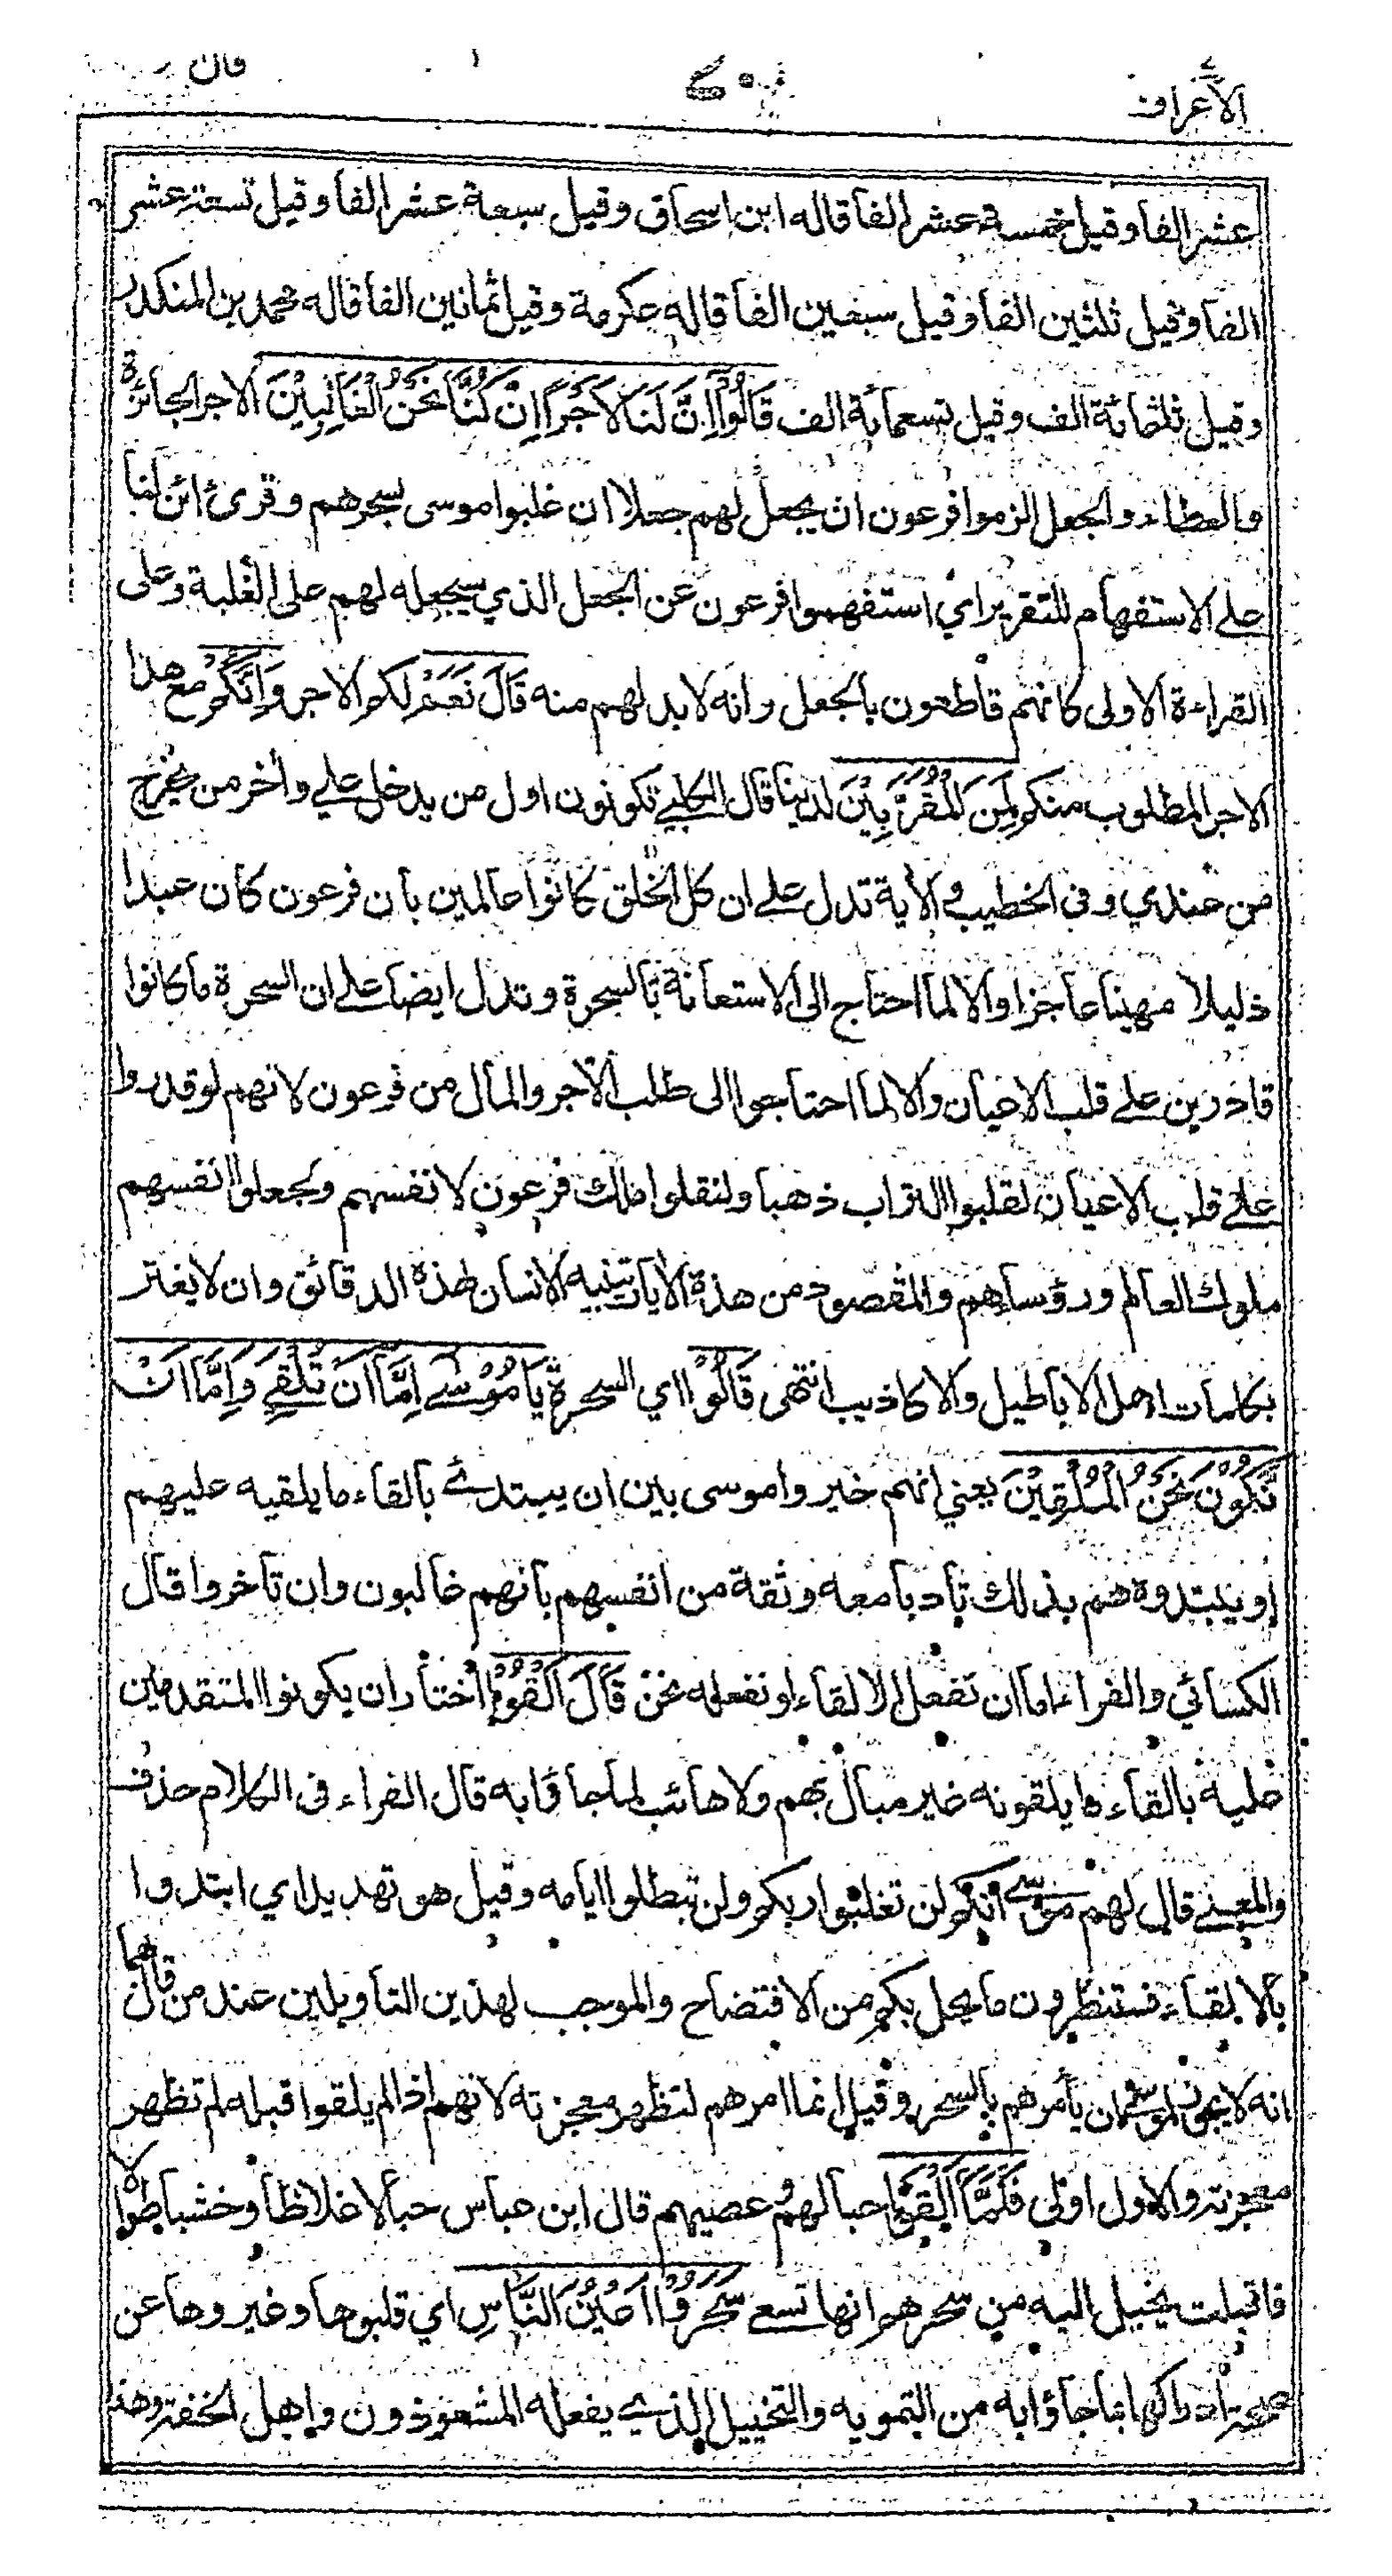 الأعراف
عشر الفا وقيل خمسة عشر الفا قاله ابن اسحاق وقيل سبعة عشر الفا وقيل تسعة عشر
الفا وقيل ثلثين الفا وقيل سبعين الفا قاله عكرمة وقيل ثمانين الفا قاله محمد بن المنكدر
وقيل ثلثمائة الف وقيل تسعمائة الف قَالُوْا اِنَّ لَنَا لَاَجْرًا اِنْ كُنَّا نَحْنُ الْغَالِبِيْنَ الاجر الجائزة
والعطاء والجعل الزموا فرعون ان يجعل لهم جعلا ان غلبوا موسى بسحرهم وقرئ ائن لنا
على الاستفهام للتقرير اي استفهموا فرعون عن الجعل الذي سيجعله لهم على الغلبة وعلى
القراءة الاولى كانهم قاطعون بالجعل وانه لا بد لهم منه قَالَ نَعَمْ لكم الاجر وَاِنَّكُمْ مع هذا
الاجر المطلوب منكم لَمِنَ الْمُقَرَّبِيْنَ لدينا قال الكلبي تكونون اول من يدخل علي وأخر من يخرج
من عندي وفي الخطيب والأية تدل على ان كل الخلق كانوا عالمين بأن فرعون كان عبدا
ذليلا مهينا عاجزا والا لما احتاج الى الاستعانة بالسحرة وتدل ايضا على ان السحرة ما كانوا
قادرين على قلب الاعيان والا لما احتاجوا الى طلب الاجر والمال من فرعون لانهم لو قدروا
على قلب الاعيان لقلبوا التراب ذهبا ولنقلوا ملك فرعون لانفسهم ولجعلوا انفسهم
ملوك العالم ورؤساهم والمقصود من هذه الأيات تنبيه الانسان لهذه الدقائق وان لا يغتر
بكلمات اهل الاباطيل والاكاذيب انتهى قَالُوْا اي السحرة يَا مُوْسٰى اِمَّا اَنْ تُلْقِيَ وَاِمَّا اَنْ
نَكُوْنَ نَحْنُ الْمُلْقِيْنَ يعني انهم خيروا موسى بين ان يبتدئ بالقاء ما يلقيه عليهم
او يبتدوه هم بذلك تأدبا معه وثقة من انفسهم بانهم غالبون وان تأخروا قال
الكسائي والفراء اما ان تفعل الالقاء او نفعله نحن قَالَ اَلْقُوْا اختار ان يكونوا المتقدمين
عليه بالقاء ما يلقونه غير مبال بهم ولا هائب لما جاؤا به قال الفراء في الكلام حذف
والمعنى قال لهم موسى انكم لن تغلبوا ربكم ولن تبطلوا اياته وقيل هو تهديد اي ابتدوا
بالالقاء فستنظرون ما يحل بكم من الافتضاح والموجب لهذين التأويلين عند من قالهما
انه لا يجوز لموسى ان يأمرهم بالسحر وقيل انما امرهم لتظهر معجزته لانهم اذا لم يلقوا قبله لم تظهر
معجزته والاول اولى فَلَمَّا اَلْقَوْا حبالهم وعصيهم قال ابن عباس حبالا غلاظا وخشبا طوالا
فاقبلت يخيل اليه من سحرهم انها تسعى سَحَرُوْا اَعْيُنَ النَّاسِ اي قلبوها وغيروها عن
صحة ادراكها بما جاؤا به من التمويه والتخييل الذي يفعله المشعوذون واهل الخفة وهذا